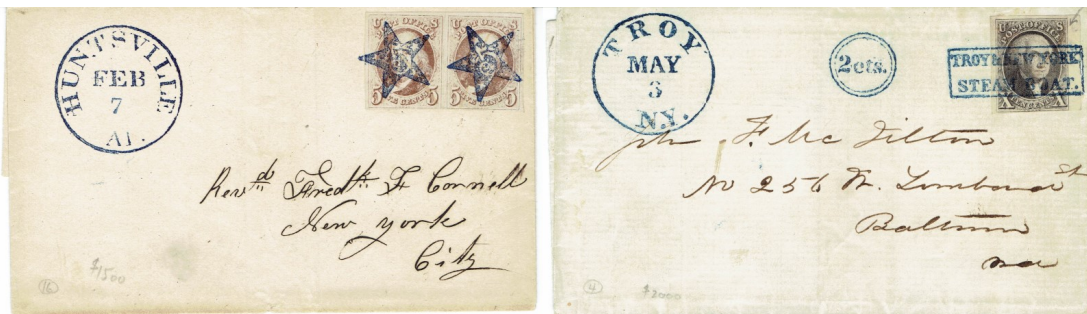 HUNTSVILLE
FEB
7
Al.
U POST OFFICE S
5 FIVE CENTS 5
U POST OFFICE S
5 FIVE CENTS 5
Revd Fredk F Connell
New York
City
16
$1500
TROY
MAY
3
N.Y.
2cts.
U POST OFFICE S
TROY & NEW YORK
STEAM BOAT.
X TEN CENTS X
John F. Mc Tilton
No 256 W. Lombard St
Baltimore
Md
4
$2000